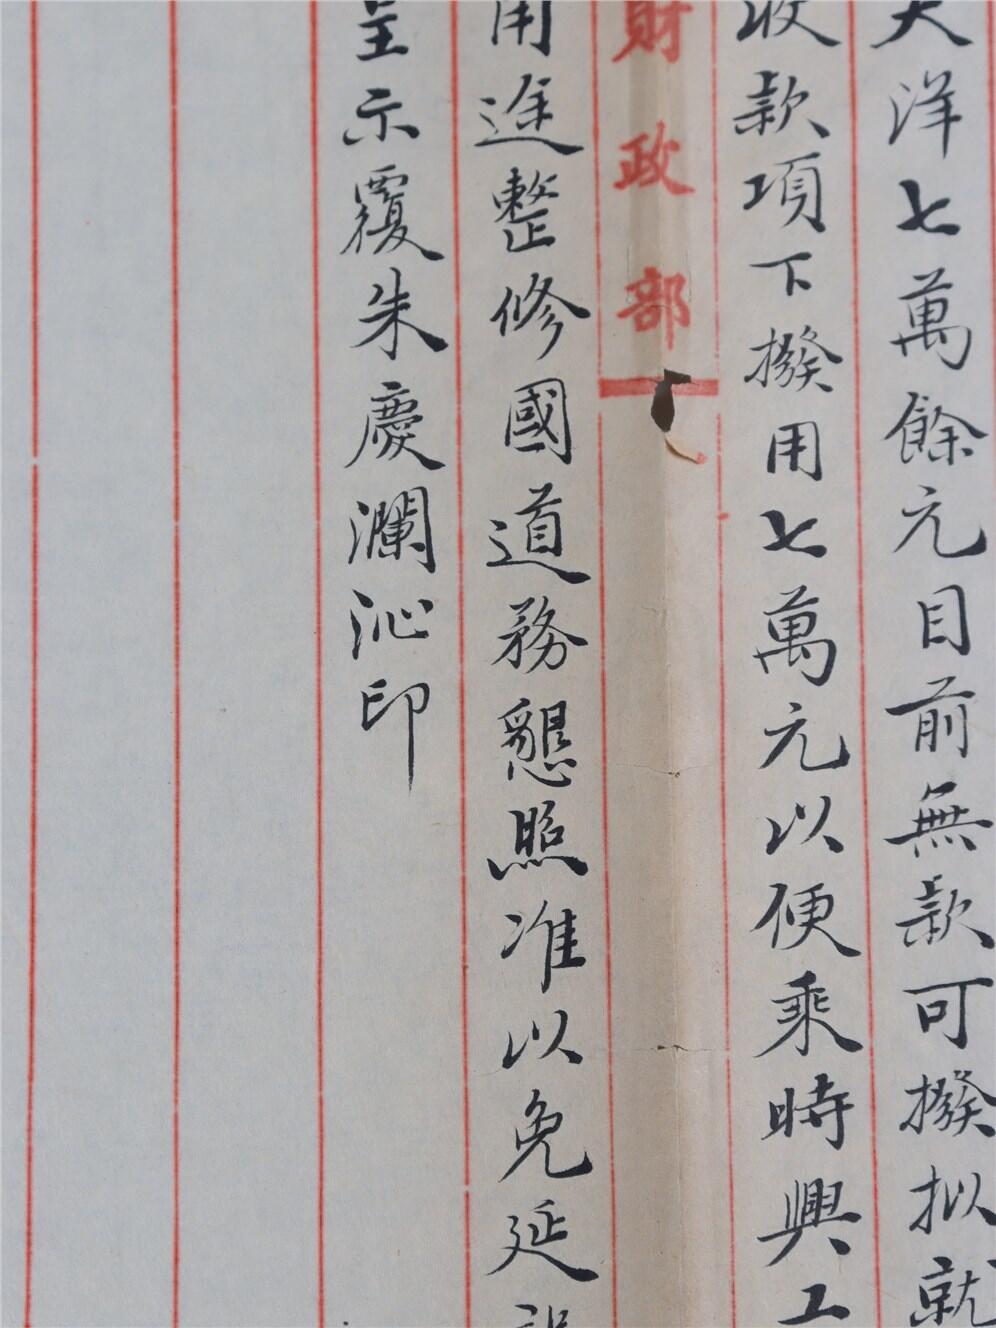 大洋七萬餘元目前無款可撥拟就
收款項下撥用七萬元以便乘時興工
財政部
用途整修國道務懇照准以免延
呈示覆朱慶瀾沁印